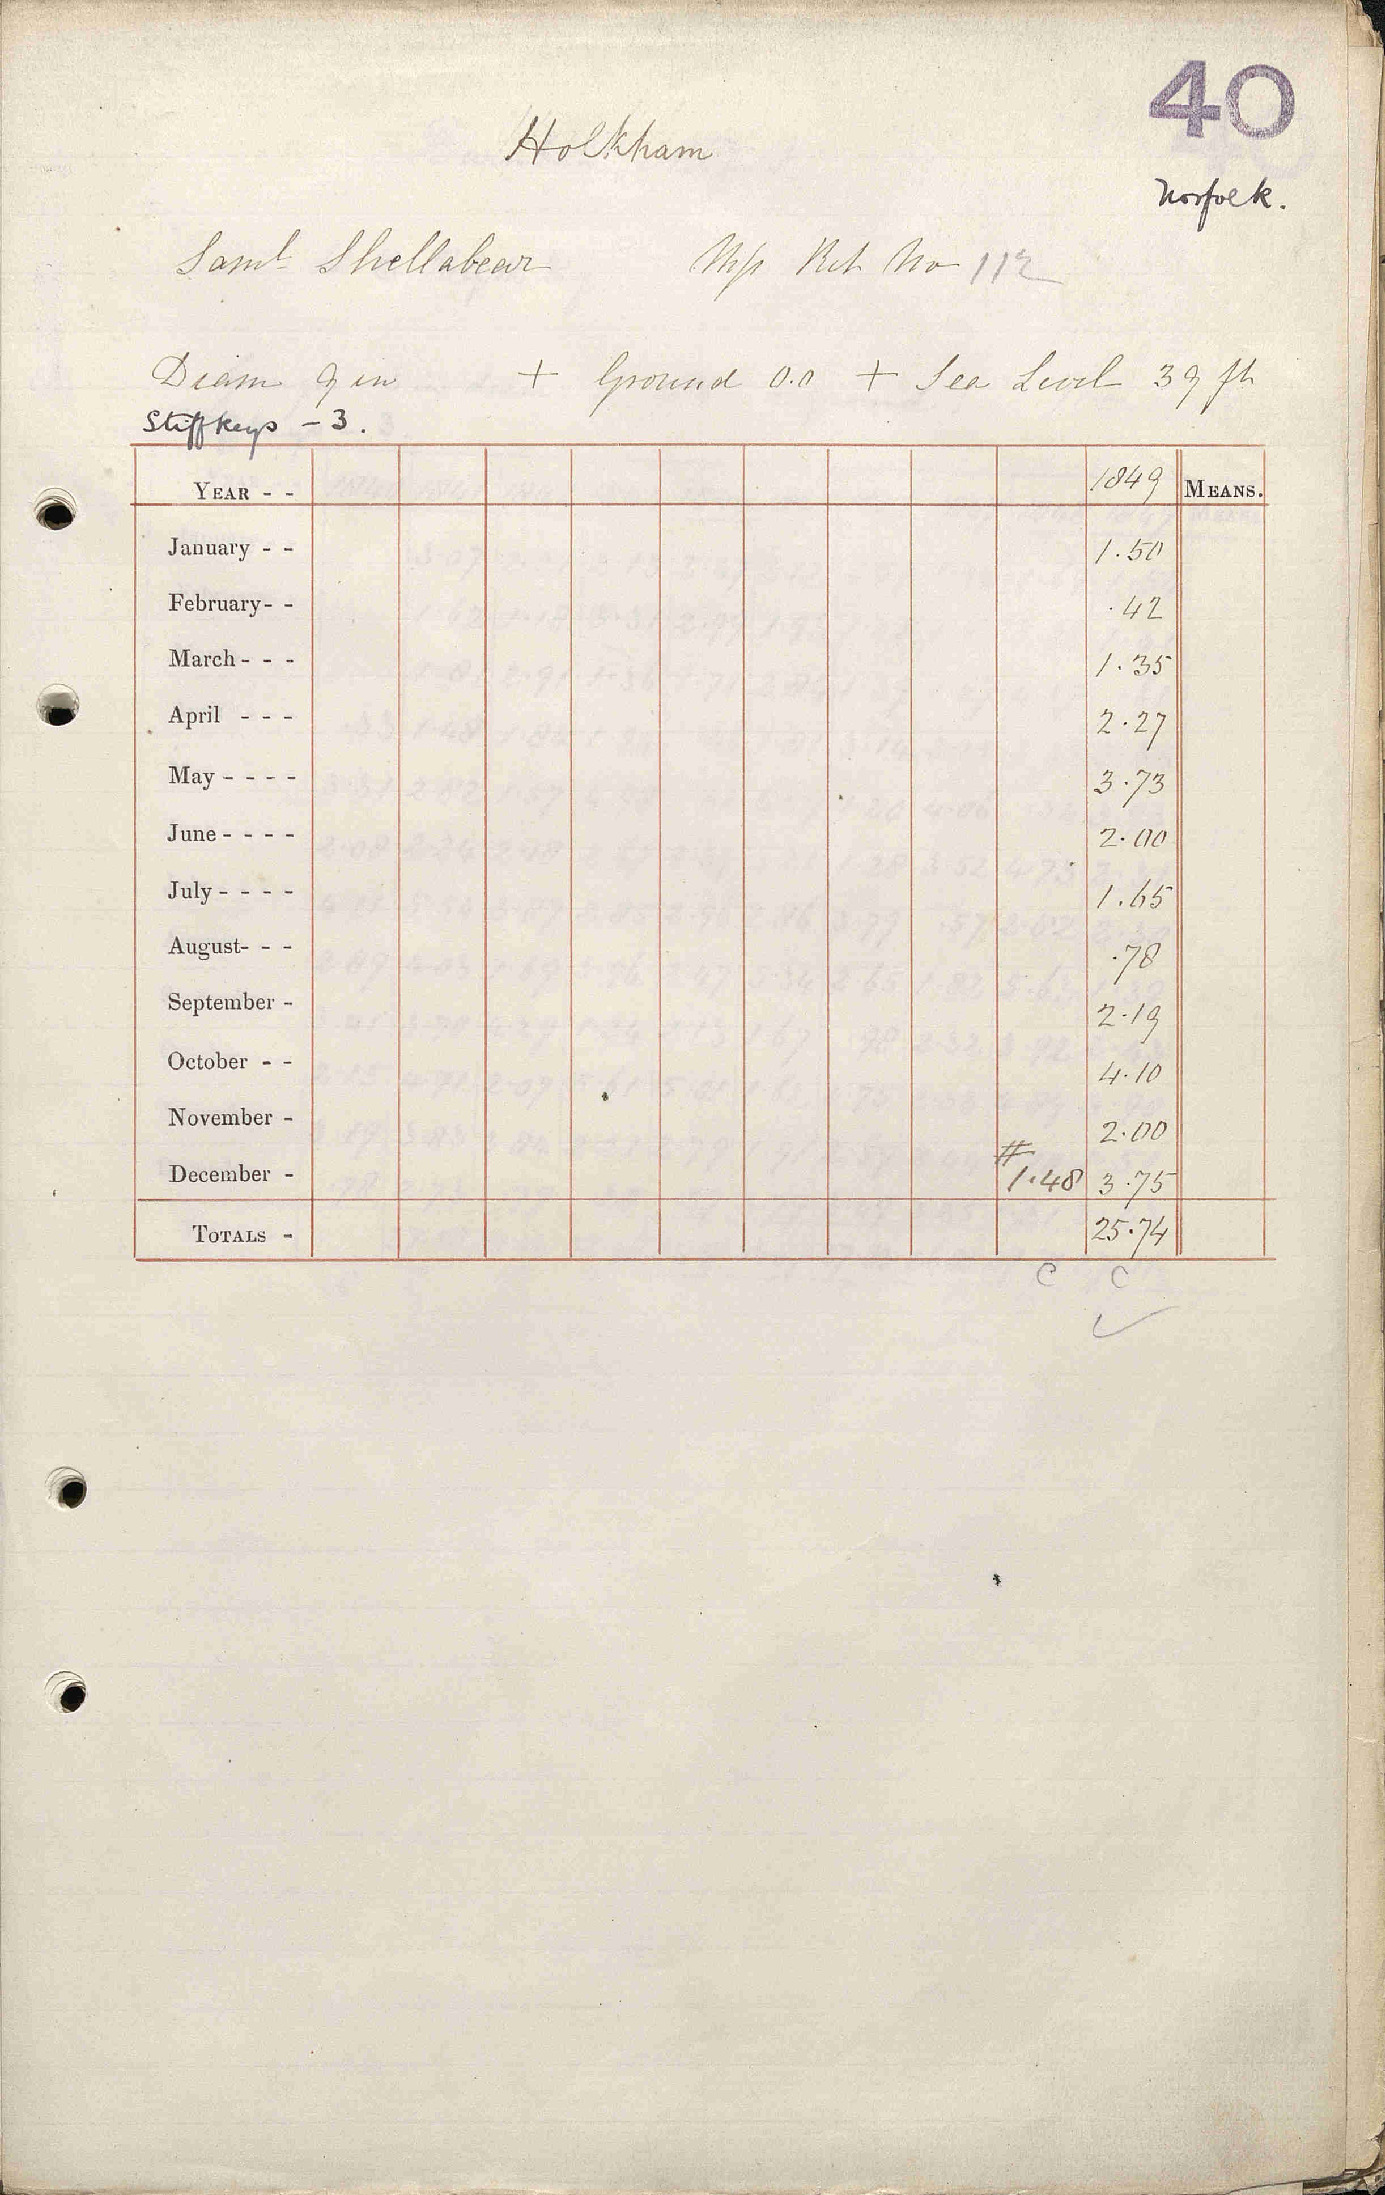 40
Holkham
Norfolk.
Saml Shellabear Mss Ret No 112
Diam 9 in + Ground 0.0 + Sea Level 39 ft
Stiffkeys - 3.
YEAR - - 1849 MEANS.
January - - 1.50
February- - .42
March- - - 1.35
April - - - 2.27
May - - - - 3.73
June - - - - 2.00
July - - - - 1.65
August- - - .78
September - 2.19
October - - 4.10
November - 2.00
December - # 1.48 3.75
TOTALS - 25.74
C C